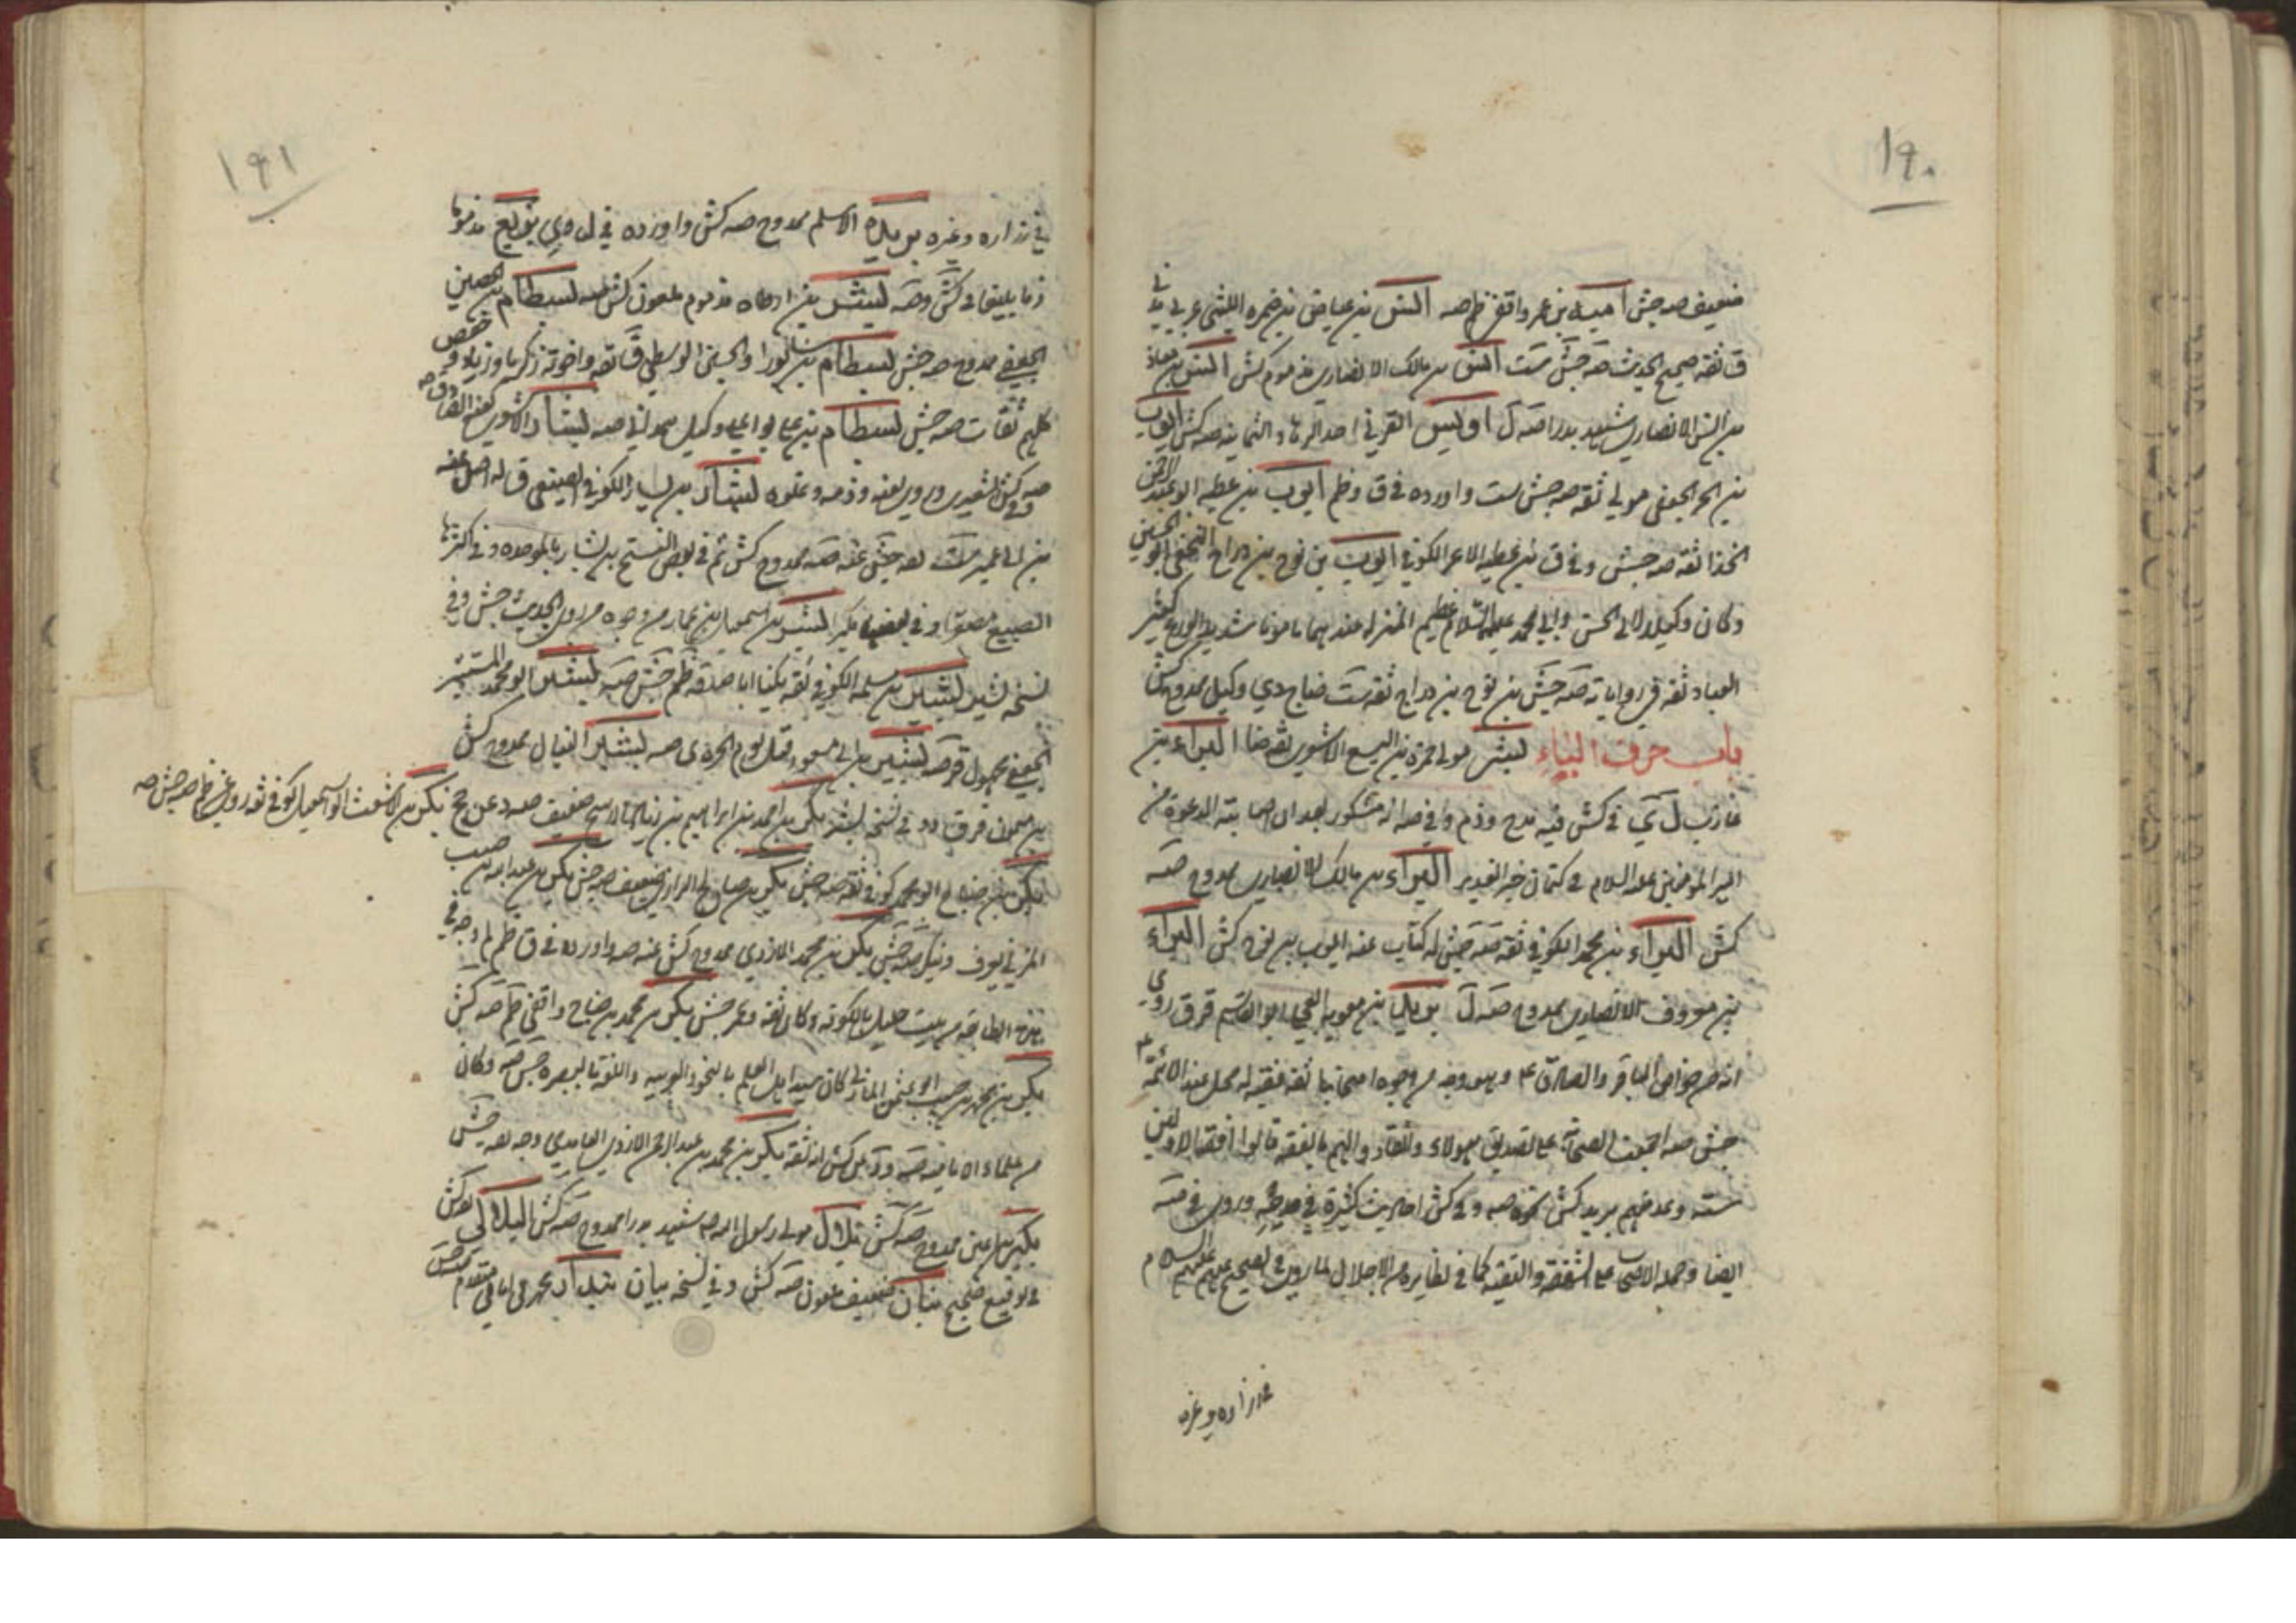 ١٩٠
ضعيف صه جش امية بن عمرو واقفي ظم صه انس بن عياض بن ضمره الليثي عربي مدني
ق ثقة صحيح الحديث صه جش ست انس بن مالك الانصاري مذموم كش انس بن معاذ
بن انس الانصاري شهيد بدرا صه ل اويس القرني احد الزهاد الثمانيه صه كش ايوب
بن الحر الجعفي مولى ثقه صه جش ست واورده في ق وظم ايوب بن عطيه ابو عبد الرحمن
الحذا ثقه صه جش وفي ق بن عطيه الاعرج الكوفي ايوب بن نوح بن دراج النخعي ابو الحسين
وكان وكيلا لابي الحسن وابي محمد عليهما السلام عظيم المنزله عندهما مامونا شديد الورع كثير
العباده ثقه في رواياته صه جش بن نوح بن دراج ثقه ست ضا ج دي وكيل ممدوح كش
باب حرف الباء بشر مولى حمزة بن اليسع الاشعري ثقه ضا البراء بن
عازب ل ي في كش فيه مدح وذم وفي صه انه مشكور بعد ان اصابته الدعوة من
امير المؤمنين عليه السلام في كتمان خبر الغدير البراء بن مالك الانصاري ممدوح صه
كش البراء بن محمد الكوفي ثقه صه جش له كتاب عنه ايوب بن نوح كش البراء
بن معروف الانصاري ممدوح صه ل بريد بن معويه العجلي ابو القسم قر ق روى
انه من حواري الباقر والصادق ع وهو وجه من وجوه اصحابنا ثقه فقيه له محل عند الائمة ع
جش صه اجمعت العصابة على تصديق هولاء وانقادوا اليهم بالفقه قالوا افقه الاولين
ستة وعد منهم بريد كش نحوه صه وفي كش احاديث كثيرة في مدحه وروى في ذمه
ايضا وحمله الاصحاب على الشفقة والتقيه كما في نظايره من الاجلال لما روى في الصحيح عنهم عليهم السلام
في زراره وغيره
١٩١
في زراره وغيره بريدة الاسلمي ممدوح صه كش واورده في ل وي بزيع مذموما
بشر بن ارطاه مذموم ملعون كش صه بسطام بن الحصين
الجعفي ممدوح صه جش بسطام بن سابور ابو الحسين الواسطي ق ثقه واخوته زكريا وزياد وحفص
كلهم ثقات صه جش بسطام بن علي ابو علي وكيل همداني صه بشار الاشعري لعنه الصادق ع
صه وفي كش الشعيري وروى لعنه وذمه وغلوه بشار بن يسار الكوفي الضبيعي ق له اصل عنه
بن ابي عمير ست ثقه جش عنه صه ممدوح كش ثم في بعض النسخ بن بشار بالموحده وفي اكثرها
الضبيع مصغرا وفي بعضها مكبرا بشر بن اسمعيل بن عمار من وجوه من روى الحديث جش وفي
نسخه بشير بشر بن مسلمه الكوفي ثقه يكنى ابا صدقه ظم جش صه بشر ابو محمد المستنير
الجعفي مجهول قر صه بشير بن ابي مسعود قتل يوم الحره ي صه بشير النبال ممدوح كش
بن ميمون قر ق دو في نسخه بشر بكر بن احمد بن ابراهيم بن زياد ضعيف صه د عن ج
بكر بن الاشعث ابو اسمعيل كوفي ثقه روى عن ظم صه جش
بكر بن جناح ابو محمد كوفي ثقه صه جش بكر بن صالح الرازي ضعيف صه جش بكر بن عبد الله بن حبيب
المزني يعرف وينكر صه جش بكر بن محمد الازدي ممدوح كش عنه صه واورده في ق ظم لم وجه في
هذه الطائفه من بيت جليل بالكوفه وكان ثقه وعمر جش بكر بن محمد بن جناح واقفي ظم صه كش
بكر بن محمد بن حبيب ابو عثمن المازني كان سيد اهل العلم بالنحو والعربيه واللغه بالبصره جش صه وكان
من علماء الاماميه صه بكر بن محمد بن عبد الرحمن الازدي الغامدي وجه ثقه جش
بكير بن اعين ممدوح صه كش بلال مولى رسول الله صه شهيد بدرا ممدوح صه كش البلالي ثقه كش
في توقيع صحيح بنان ضعيف ملعون صه كش وفي نسخه بيان بندار بن محمد امامي متقدم صه جش